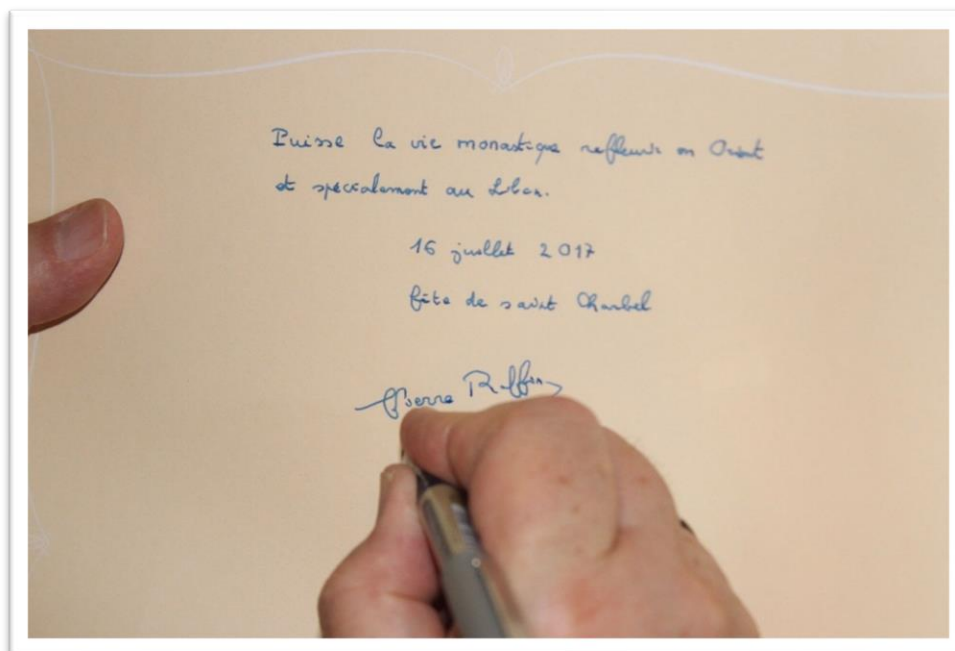 Puisse la vie monastique refleurir en Orient
et spécialement au Liban.
16 juillet 2017
fête de saint Charbel
Pierre Raffin